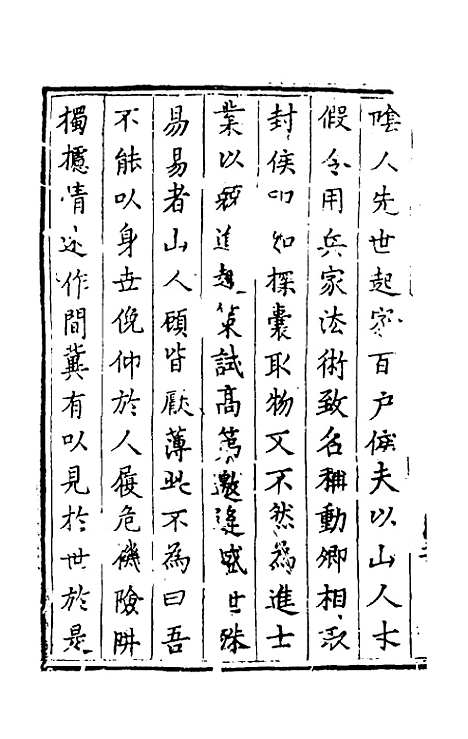 喰人先世起家百户侯夫以山人才
假令用兵家法術致名稱動卿相取
封侯印如探囊取物又不然為進士
業以發進趨策試高等邀逢盛世殊
易易者山人顧皆厭薄此不為曰吾
不能以身世俛仰於人履危機險阱
獨攄情述作間冀有以見於世於是